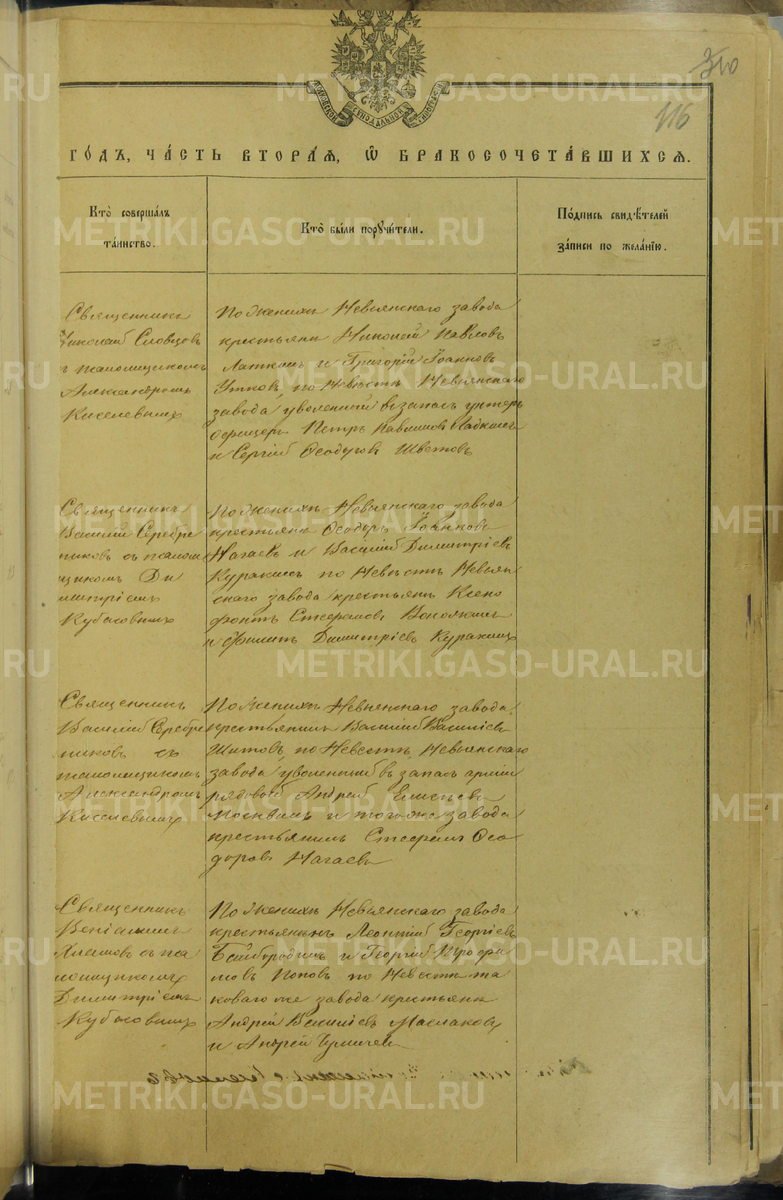 310
116
МОСКОВСКОЙ СѴНОДАЛЬНОЙ ТИПОГРАФІИ
ГО́ДЪ, ЧА́СТЬ ВТОРА́Я, Ѡ҆ БРАКОСОЧЕТА́ВШИХСЯ.
Кто̀ соверша́лъ
та́инство.
Кто̀ бы́ли порꙋчи́тели.
По́дпись свидѣ́телей
за́писи по жела́нїю.
Священникъ
Николай Словцовъ
с псаломщикомъ
Александромъ
Киселевымъ
По женихѣ Невьянскаго завода
крестьяне Николай Павловъ
и Григорій Іоанновъ
Утковъ, по невѣстѣ Невьянскаго
завода уволенный въ запасъ унтеръ
офицеръ Петръ
и Сергій Ѳеодоровъ Шветовъ
Священникъ
Василій Серебре
никовъ съ псалом
щикомъ Ди
митріемъ
Кубасовымъ
По женихѣ Невьянскаго завода
крестьяне Ѳеодоръ Іоанновъ
Нагаевъ и Василій Димитріевъ
Куракинъ по невѣстѣ Невьян
скаго завода крестьяне Ксено
фонтъ Стефановъ
и Филиппъ Димитріевъ Куракинъ
Священникъ
Василій Серебре
никовъ съ
псаломщикомъ
Александромъ
Киселевымъ
По женихѣ Невьянскаго завода
крестьянинъ Василій Васильевъ
Шитовъ, по невѣстѣ Невьянскаго
завода уволенный въ запасъ арміи
рядовой Андрей Елисѣевъ
Москвинъ и того же завода
крестьянинъ Стефанъ Ѳео
доровъ Нагаевъ
Священникъ
Веніаминъ
съ пса
ломщикомъ
Димитріемъ
Кубасовымъ
По женихѣ Невьянскаго завода
крестьянинъ Леонтій Георгіевъ
Байбородинъ и Георгій Трофи
мовъ Поповъ по невѣстѣ та
коваго же завода крестьяне
Андрей Василіевъ Маслаковъ
и Андрей
METRIKI.GASO-URAL.RU